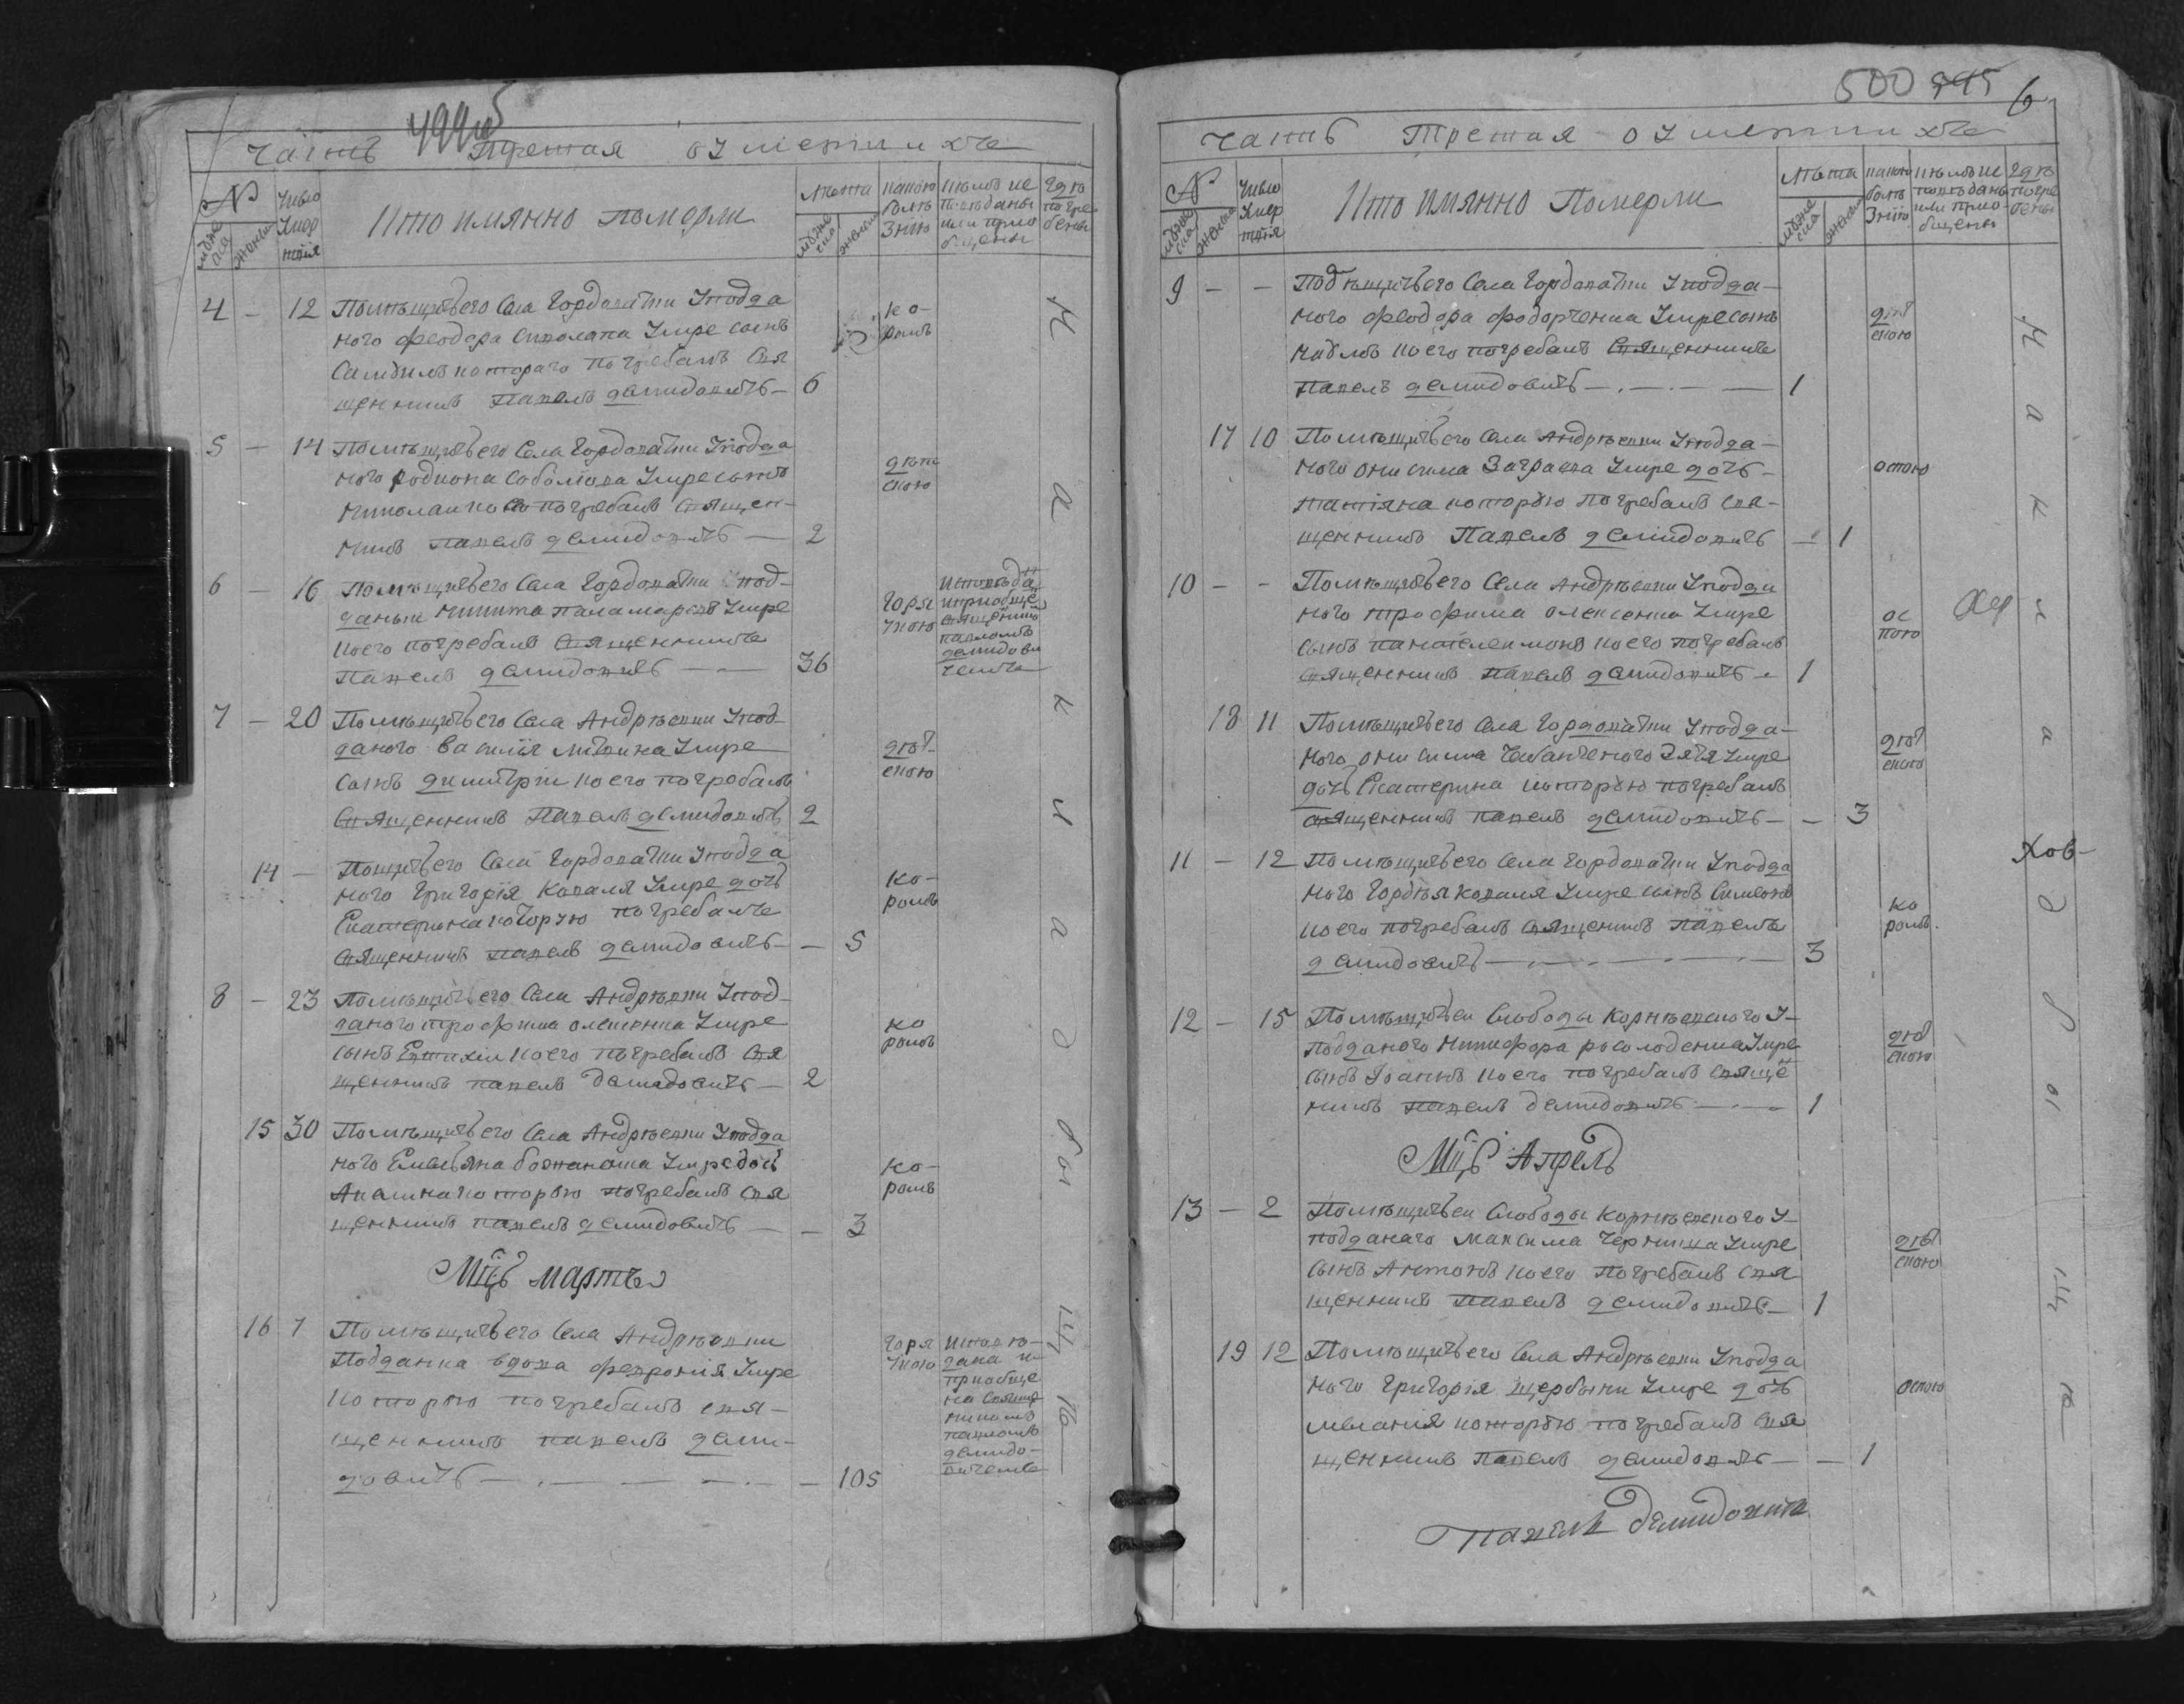 499 об
Часть Третая о умершихъ
№
мужеска
женска
Число Умертвія
Кто имянно померли
Лѣта
мужеска
женска
какою болѣзнію
кѣмъ исповѣданы или приобщены
Гдѣ погребены
4 - 12 Помѣщичьего Села Гордоватки Уподда
ного Феодора Сиволапа Умре сынъ
Самоилъ которого погребалъ Свя
щенникъ Павелъ Демидовичъ - 6
ко-
ромъ
5 - 14 Помѣщичьего Села Гордоватки Уподда
ного Родиона Умре сынъ
Николаи коего погребалъ Священ-
никъ Павелъ Демидовичъ - 2
дѣт
скою
6 - 16 Помѣщичьего Села Гордоватки под-
даныи Никита Паламарь Умре
коего погребалъ Священникъ
Павелъ Демидовичъ - - 36
горя
чкою
Исповѣда
и приобще
священник
павломъ
демидови
чемъ
7 - 20 Помѣщичьего Села Андрѣевки Упод-
даного Василія Умре
сынъ Димитріи коего погребалъ
Священникъ Павелъ Демидовичъ 2
дѣт-
скою
14 - Пощичьего Села Гордоватки Уподда
ного Григорія Коваля Умре дочь
Екатерина которую погребалъ
Священникъ Павелъ Демидовичъ - - 5
ко-
ромъ
8 - 23 Помѣщичьего Села Андрѣевки Упод-
даного Трофима Олексенка Умре
сынъ Евтихіи коего погребалъ Свя
щенникъ Павелъ Демидовичъ - 2
ко
ромъ
15 30 Помѣщичьего Села Андрѣевки Уподда
ного Емельяна Умре дочь
Акилина которую погребалъ Свя
щенникъ Павелъ Демидовичъ - - 3
ко-
ромъ
Мцъ Мартъ
16 7 Помѣщичьего Села Андрѣевки
Подданка вдова Феврония Умре
которую погребалъ свя-
щенникъ Павелъ Деми-
довичъ - - - - 105
горя
чкою
исповѣ-
дана и
приобще
на священ
никомъ
павломъ
демидо-
вичемъ
На кладбищѣ
500 6
Часть Третая о умершихъ
№
мужеска
женска
Число Умертвія
Кто имянно Померли
Лѣта
мужеска
женска
какою болѣзнію
кѣмъ исповѣданы или приобщены
Гдѣ погребены
9 - - Помѣщичьего Села Гордоватки Уподда-
ного Феодора Федорченка Умре сынъ
коего погребалъ Священникъ
Павелъ Демидовичъ - . - . - 1
дѣт
скою
17 10 Помѣщичьего Села Андрѣевки Уподда-
ного Онисима Заграева Умре дочь-
Татіяна которую погребалъ Свя-
щенникъ Павелъ Демидовичъ - 1
оспою
10 - - Помѣщичьего Села Андрѣевки Уподда
ного Трофима Олексенка Умре
сынъ Пантелеимонъ коего погребалъ
Священникъ Павелъ Демидовичъ - 1
ос
пою
18 11 Помѣщичьего Села Гордоватки Уподда-
ного Онисима Чабаненкого Зятя Умре
дочь Екатерина которую погребалъ
священникъ Павелъ Демидовичъ - - 3
дѣт
скою
11 - 12 Помѣщичьего Села Гордоватки Уподда
ного Гордѣя Коваля Умре сынъ Симеонъ
коего погребалъ священикъ Павелъ
Демидовичъ - 3
ко
ромъ.
12 - 15 Помѣщичьеи Слободы Корнѣевского У-
подданого Никифора Умре
сынъ Іоаннъ коего погребалъ Свяще
никъ Павелъ Демидовичъ - 1
дѣт
скою
Мцъ Апрель
13 - 2 Помѣщичьеи Слободы Корнѣевского У-
подданаго Максима Умре
сынъ Антонъ коего погребалъ Свя
щенникъ Павелъ Демидовичъ - 1
дѣт
скою
19 12 Помѣщичьего Села Андрѣевки Уподда
ного Григорія Щербины Умре дочь
Мелания которую погребалъ Свя
щенникъ Павелъ Демидовичъ - - 1
оспою
На кладбищѣ
Павелъ Демидовичъ